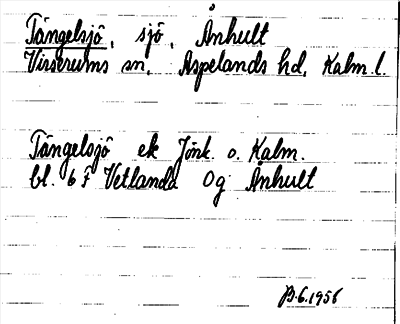 Tängelsjö, sjö, Ånhult
Virserums sn. Aspelands hd. Kalm. l.
Tängelsjö ek Jönk. o. Kalm.
bl. 6 F Vetlanda Og Ånhult
B.G. 1956